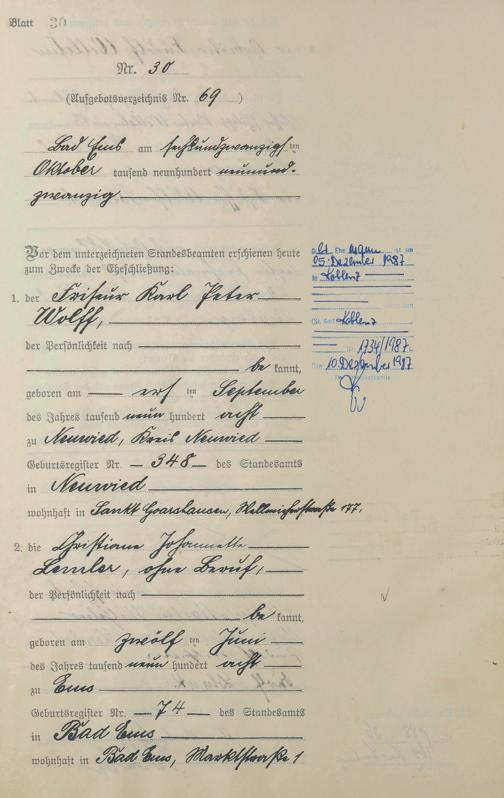 Blatt 30
Nr. 30
(Aufgebotsverzeichnis Nr. 69)
Bad Ems am sechsundzwanzigsten
Oktober tausend neunhundert neunund-
zwanzig
Vor dem unterzeichneten Standesbeamten erschienen heute
zum Zwecke der Eheschließung:
1. der Friseur Karl Peter
Wolff,
der Persönlichkeit nach
be kannt,
geboren am ersten September
des Jahres tausend neun hundert acht
zu Neuwied, Kreis Neuwied
Geburtsregister Nr. 348 des Standesamts
in Neuwied
wohnhaft in Sankt Goarshausen, Wellmicherstraße 177.
2. die Christiane Johannette
Lemler, ohne Beruf,
der Persönlichkeit nach
be kannt,
geboren am zwölften Juni
des Jahres tausend neun hundert acht
zu Ems
Geburtsregister Nr. 74 des Standesamts
in Bad Ems
wohnhaft in Bad Ems, Marktstraße 1
Ehe ist am
05. Dezember 1987
in Koblenz
(St. Amt Koblenz
Nr. 1734/1987.
Den 10. Dezember 1987